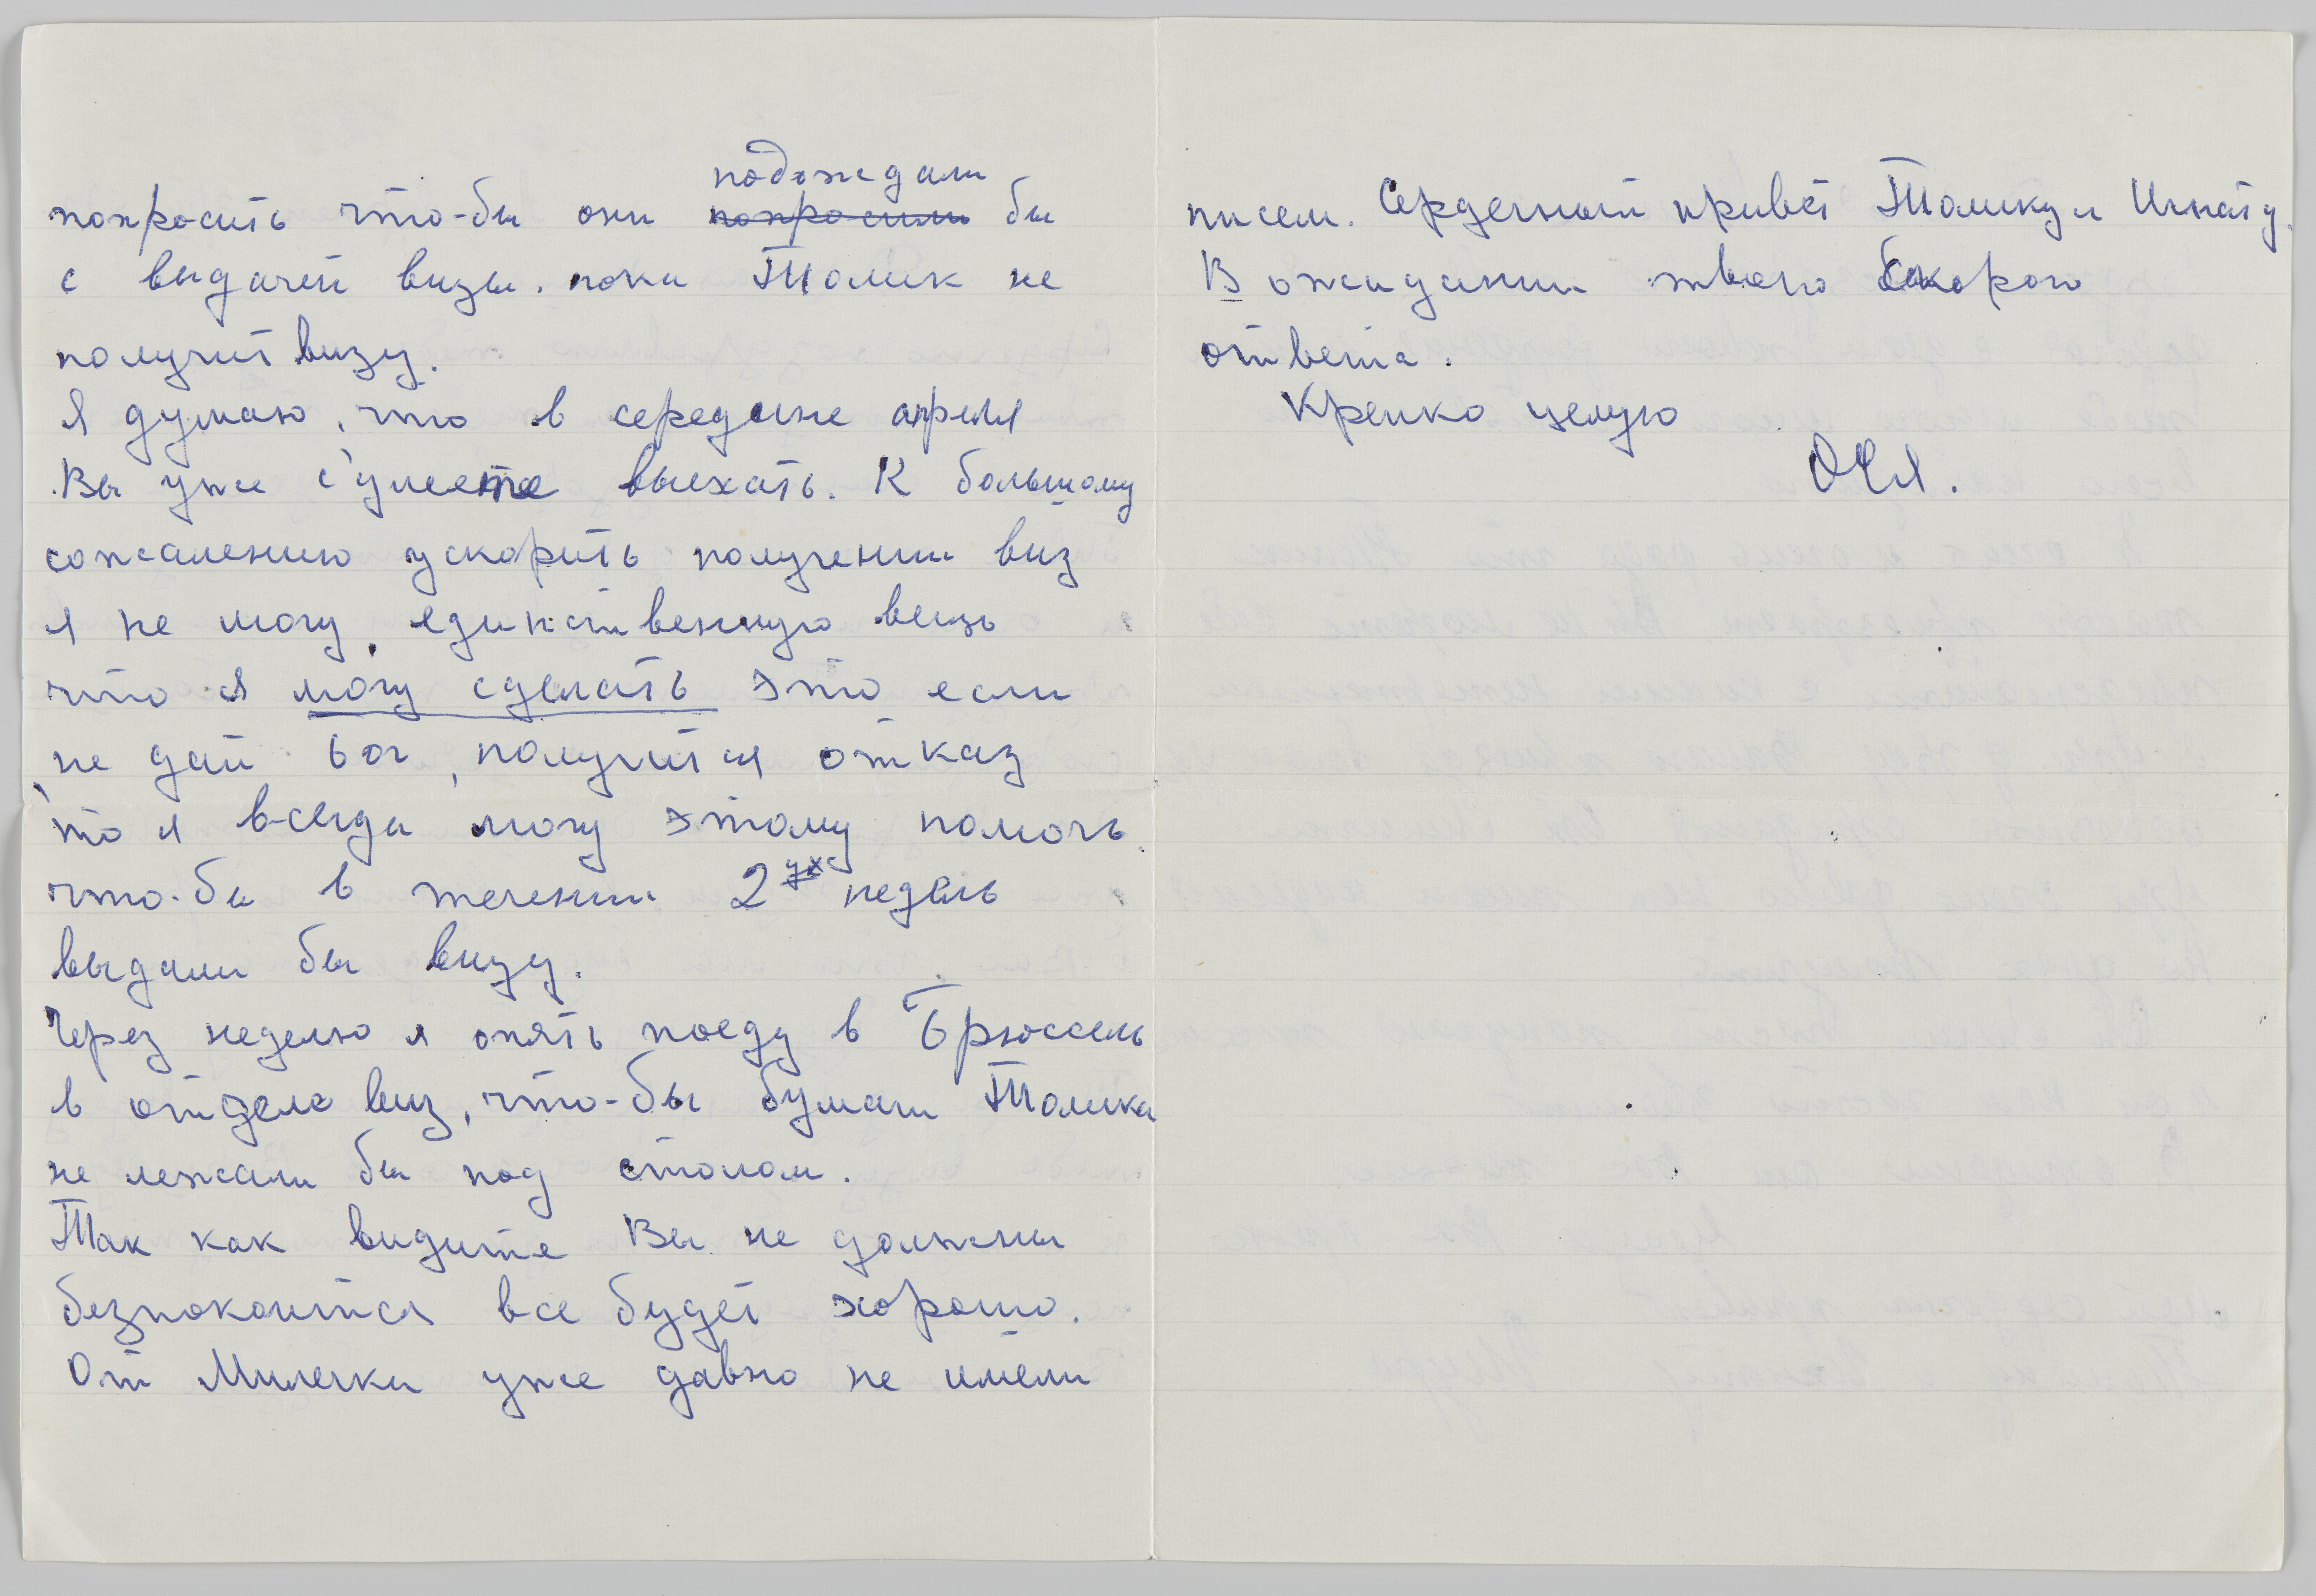 подождали
попросить что-бы они попросили бы
с выдачей визы. пока Толик не
получит визу.
Я думаю, что в середине апреля
Вы уже сумеете выехать. К большому
сожалению ускорить получении виз
я не могу, единственную вещь
что я могу сделать это если
не дай бог, получится отказ
то я всегда могу этому помочь
что-бы в течении 2ух недель
выдали бы визу.
Через неделю я опять поеду в Брюссель
в отдел виз, что-бы бумаги Толика
не лежали бы под столом.
Так как видите Вы не должны
безпокоится все будет хорошо.
От Милечки уже давно не имели
писем. Сердечный привет Толику и Игнату.
В ожидании твоего скорого
ответа.
Крепко целую
Оля.